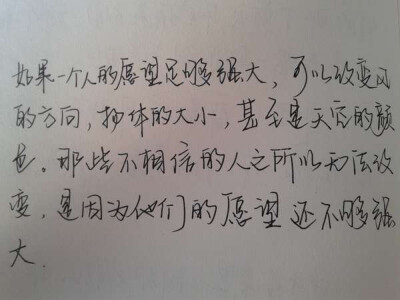 如果一个人的愿望足够强大，可以改变风
的方向，物体的大小，甚至是天空的颜
色。那些不相信的人之所以无法改
变，是因为他们的愿望还不够强
大.